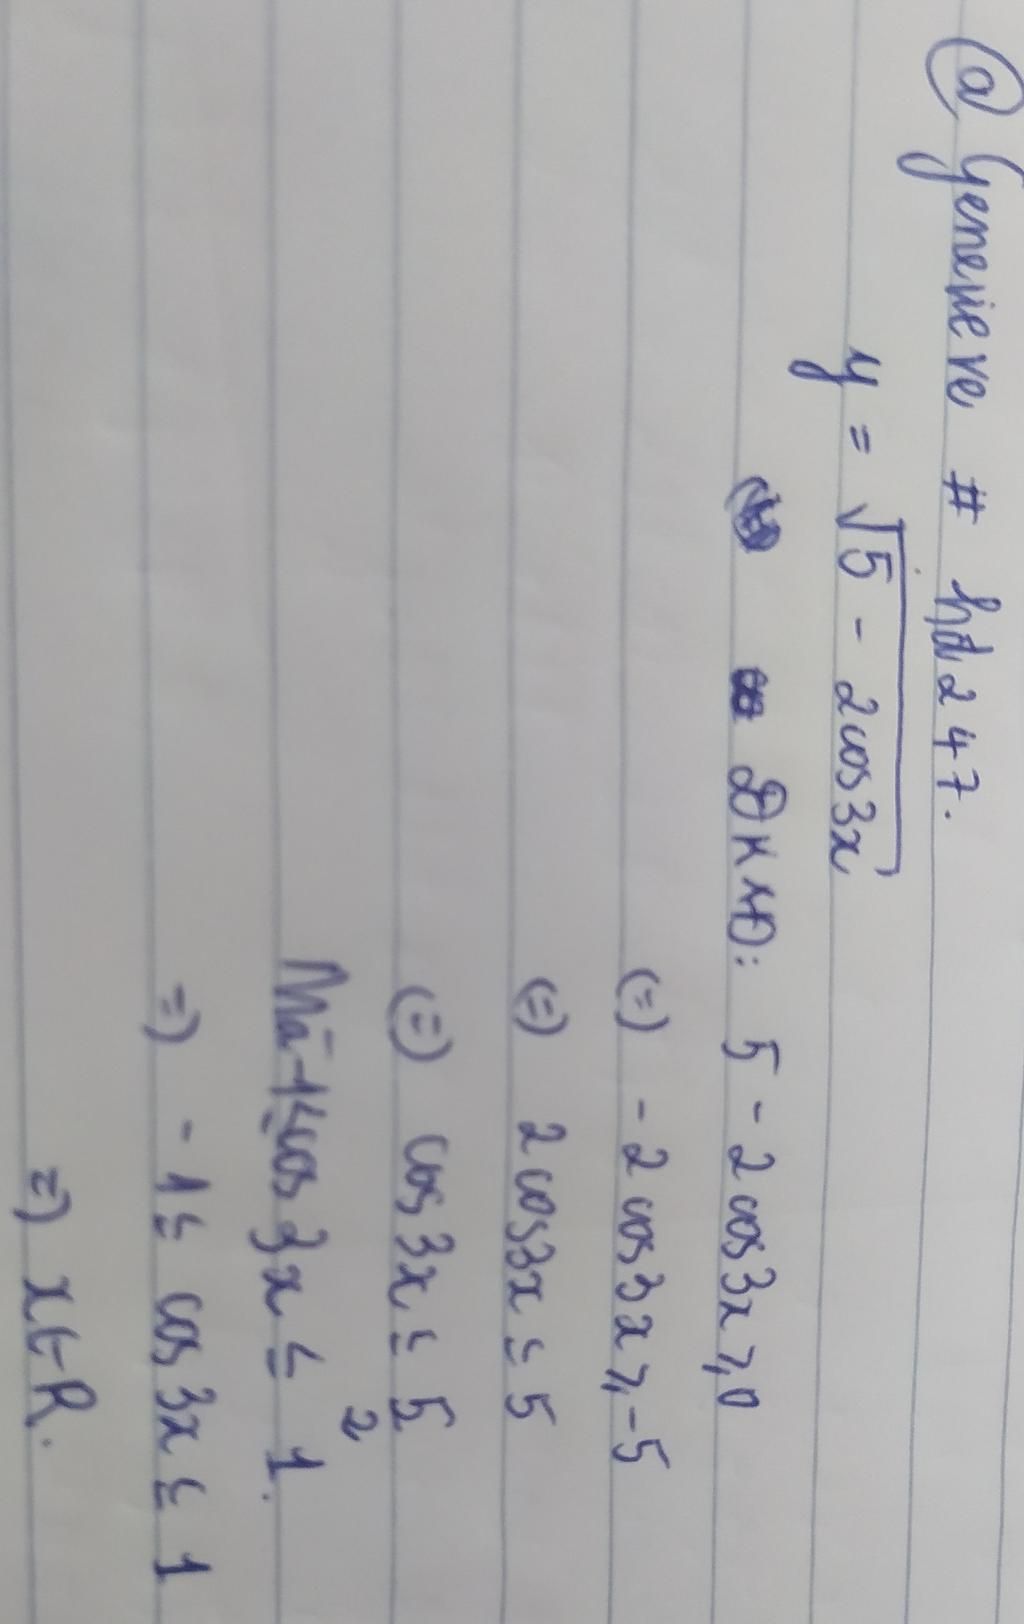 @ Genevieve # hd247.
y = √5 - 2cos3x
ĐKXĐ: 5 - 2cos3x ≥ 0
(=) -2cos3x ≥ -5
(=) 2cos3x ≤ 5
(=) cos3x ≤ 5/2
Mà -1 ≤ cos3x ≤ 1.
=) -1 ≤ cos3x ≤ 1
=) x ∈ R.